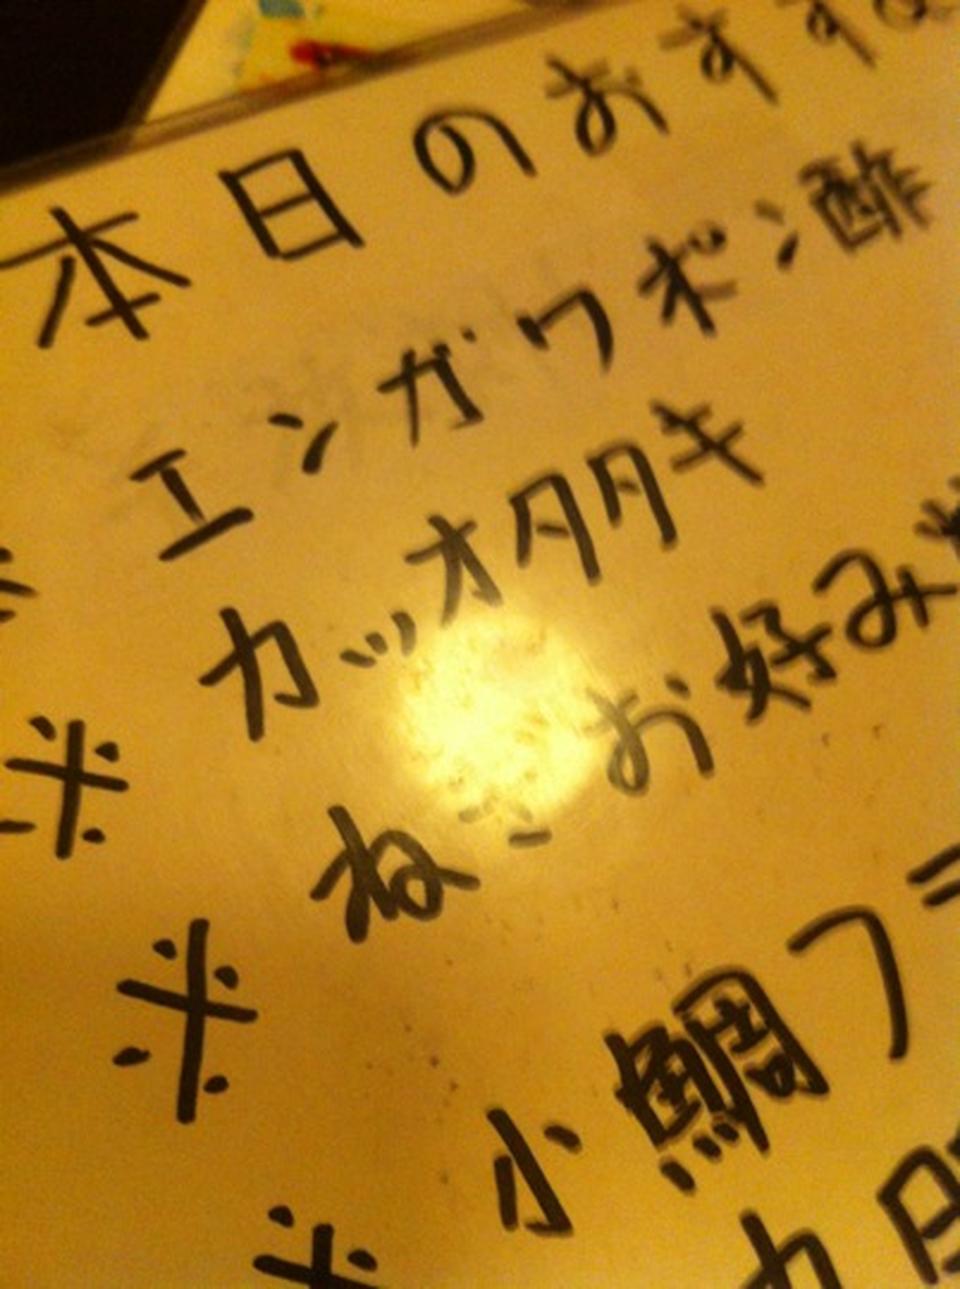 本日のおすす
エンガワポン酢
※ カツオタタキ
※ ねぎお好み
※ 小鯛フラ